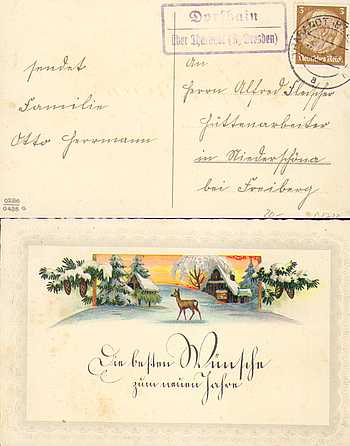 Dorfhain
über Tharandt (Bz. Dresden)
3
Deutsches Reich
sendet
Familie
Otto Herrmann
An
Herrn Alfred Fleischer
Hüttenarbeiter
in Niederschöna
bei Freiberg
0286
0436 G
Die besten Wünsche
zum neuen Jahre